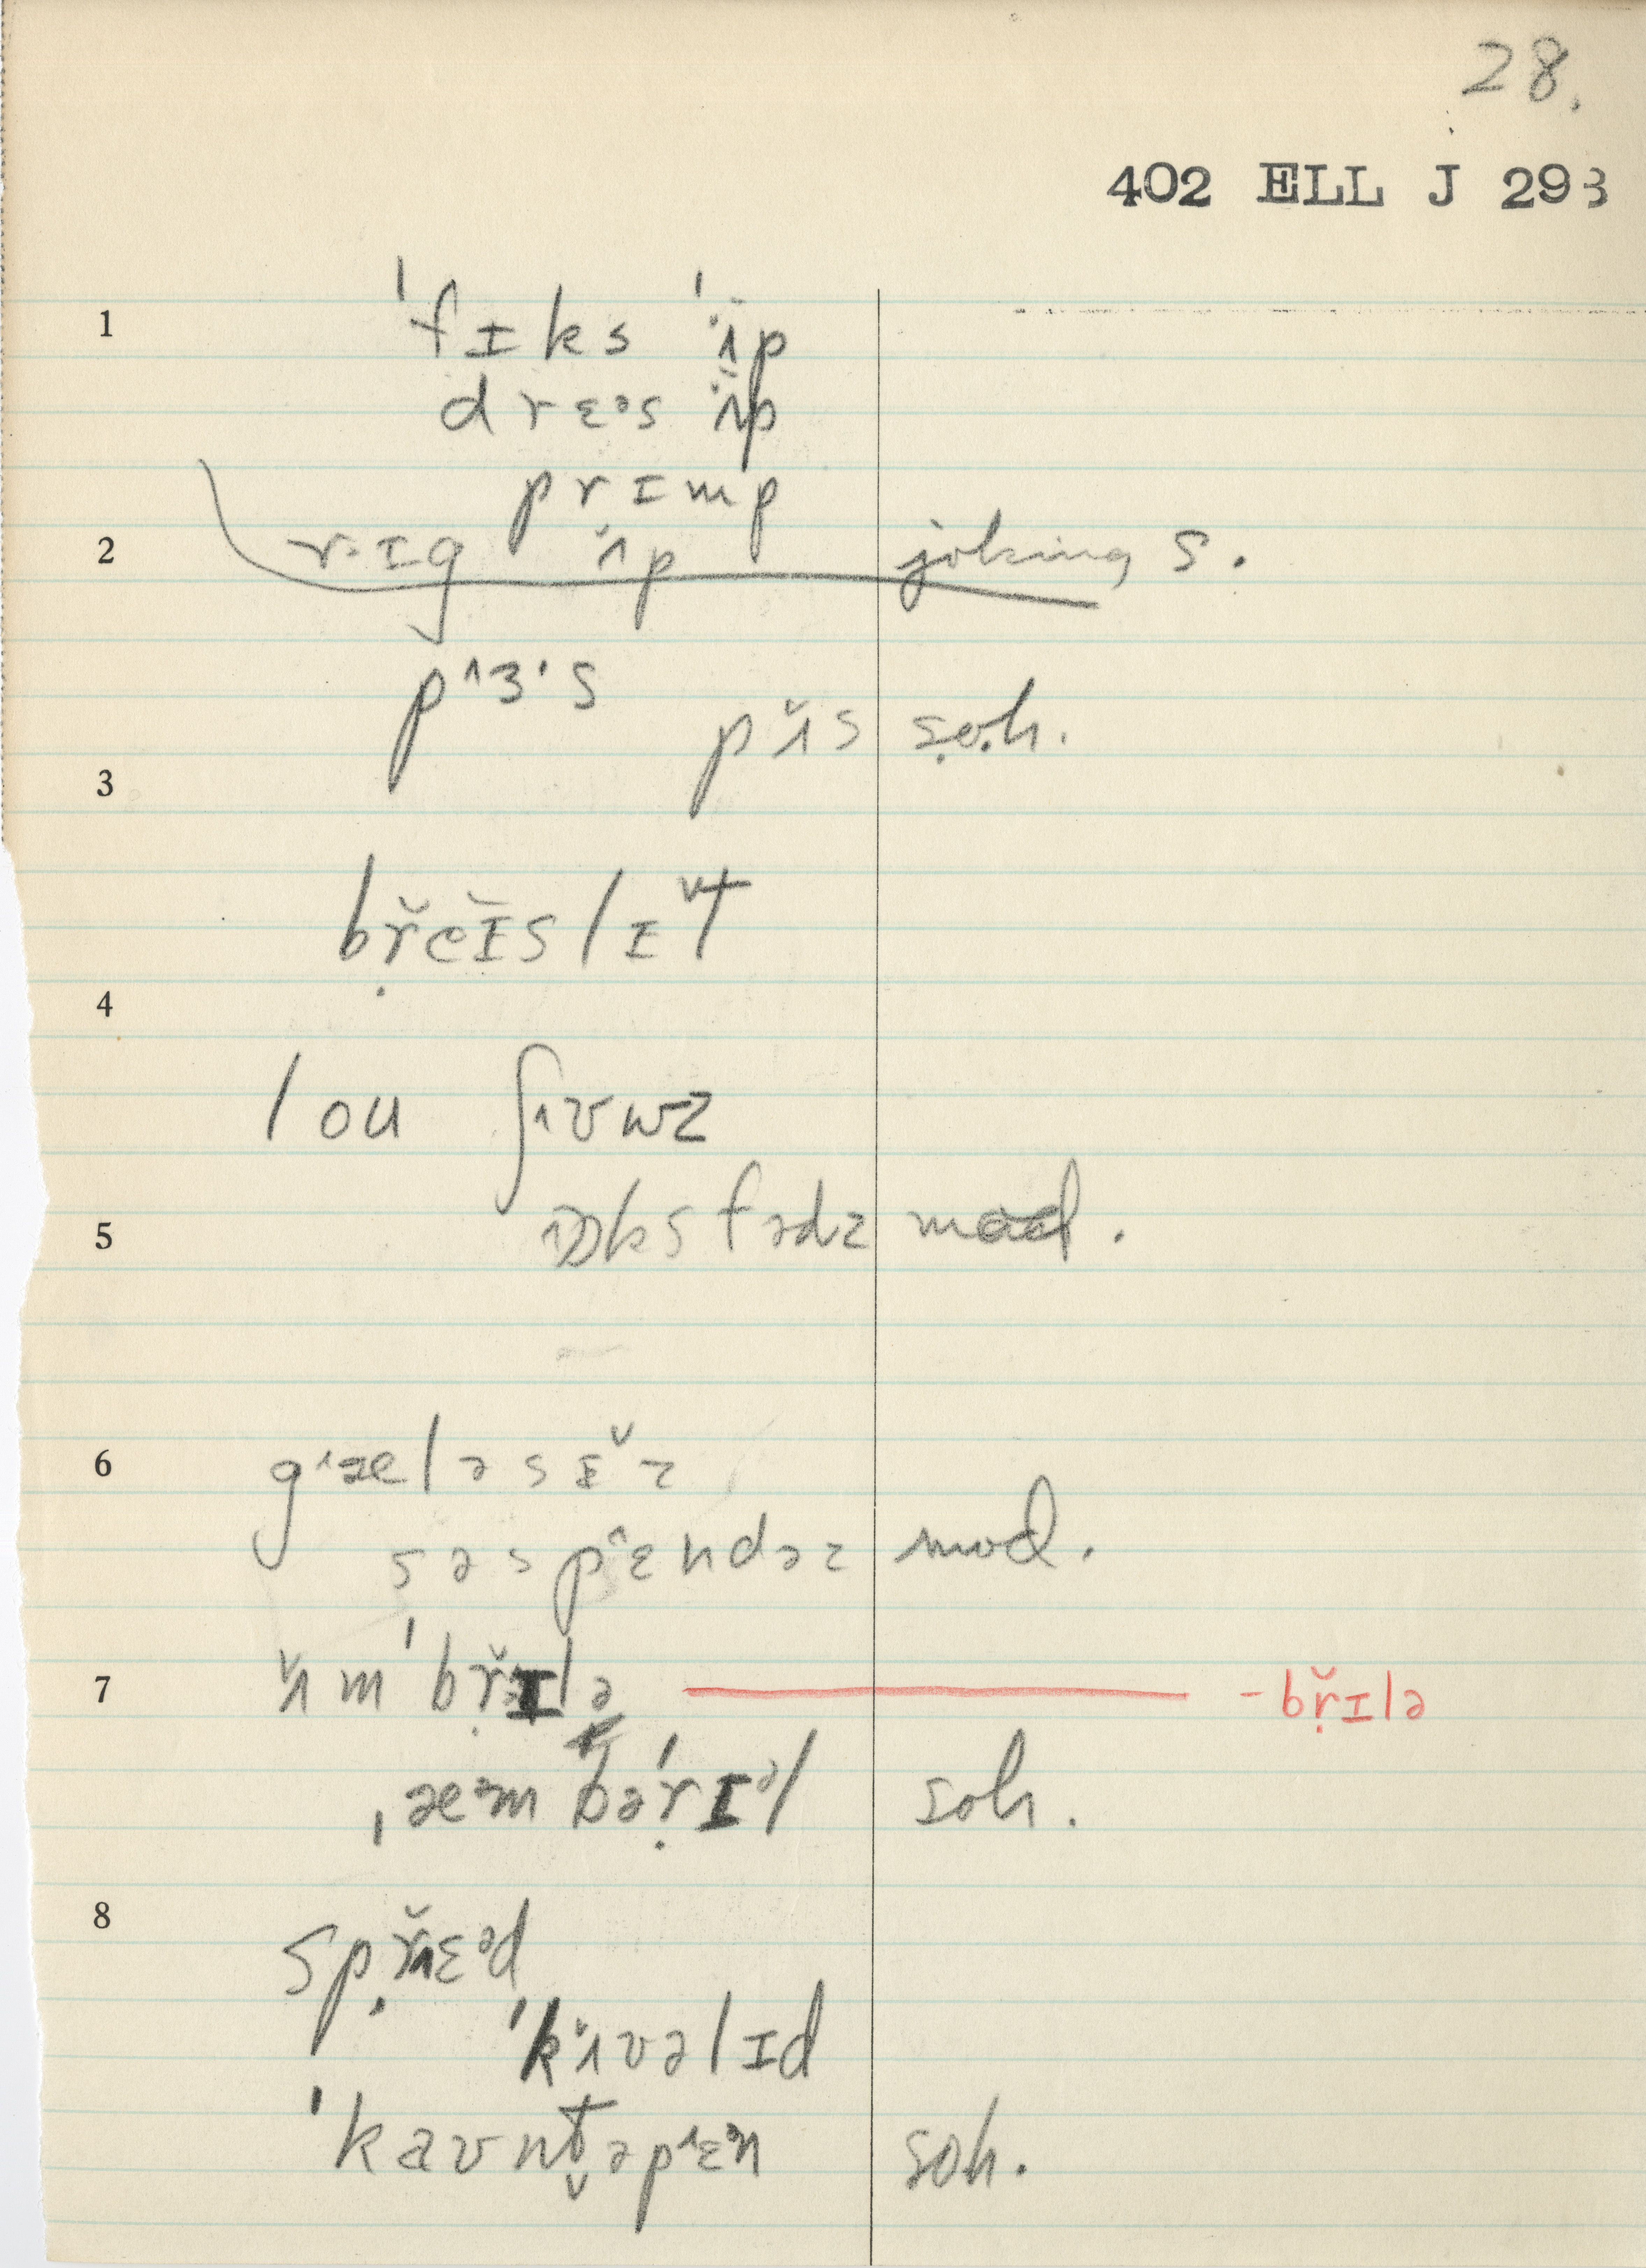 28.
402 ELL J 293
1 ˈfɪks ˈʌ̈p
drɛᵊs ʌ̈p
prɪmp
2 rɪg ʌ̆p joking s.
pˆɜ·s
pʌ̆s ṣọh.
3
bṛ̆eɪ̆slɪt̬
4
lou ʃˆʊuz
5 ɒksfədz mod.
6 gˆæləsɪ̆z
səspˆɛndəz mod.
7 ʌ̆mˈbṛ̆ɪlə -bṛ̆ɪlə
ˌæᵊmbəˈṛɪᵊl soh.
8 spṛ̆ɛᵊd
ˈkʌ̆vəlɪd
ˈkaʊnt̬əpˆɛᵊn soh.